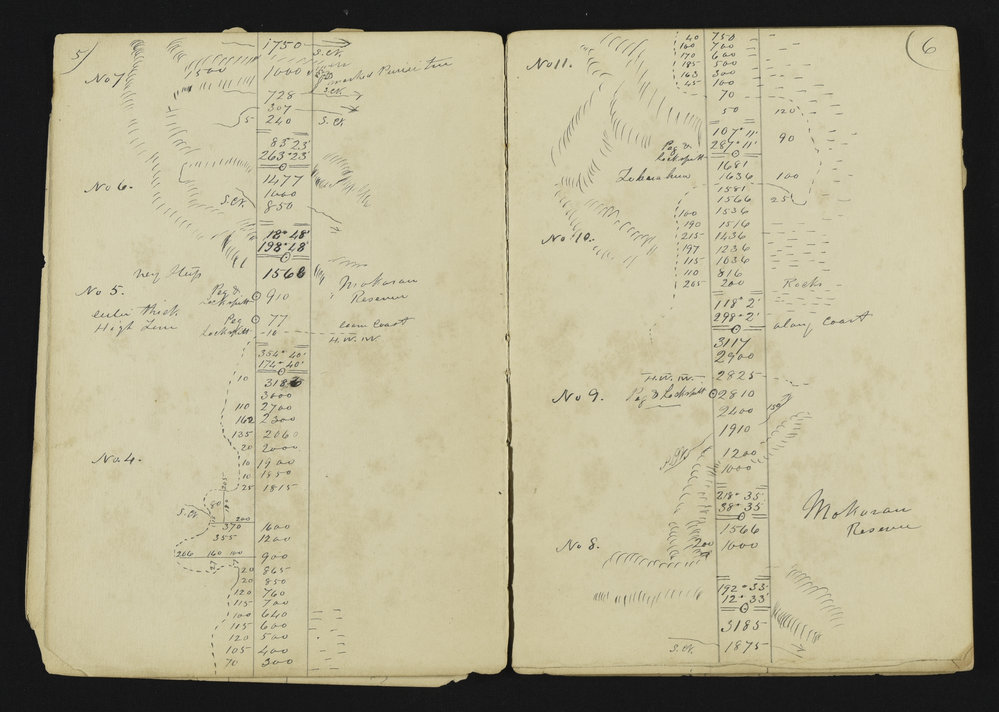 5)
1750
S. Ck.
No 7
1500
1000
marked Puriri tree
S. Ck.
728
307
5 240
S. Ck.
85° 23'
263° 23'
1477
No 6.
1000
S. Ck. 850
18° 48'
198° 48'
1566
very steep
Mokarau
Reserve
No 5.
Peg &
Lockspitt 910
Peg 77
High
Lockspitt 10
Coast
H. W. M.
354° 40'
174° 40'
10 3186
3000
110 2700
162 2300
135 2060
20 2000
No. 4.
10 1900
10 1850
25 1815
80
S. Ck.
200
370 1600
355 1200
206 160 100 900
20 865
20 850
120 760
115 700
100 640
115 600
120 500
105 400
70 300
6
40 750
100 700
170 600
No 11.
185 500
163 300
45 100
70
50 120
107° 11'
90
Peg & 287° 11'
Lockspitt
1681
1636 100
1581
1566 25
100 1536
190 1516
No 10. 215 1436
197 1236
115 1036
110 816
205 200 Rocks
118° 2'
298° 2' along Coast
3117
2900
H. W. M. 2825
No 9. Peg & Lockspitt 2810
2400 150
1910
1200
1000
218° 35'
38° 35'
Mokarau
Reserve
1566
No 8.
200 1000
192° 33'
12° 33'
3185
S. Ck. 1875